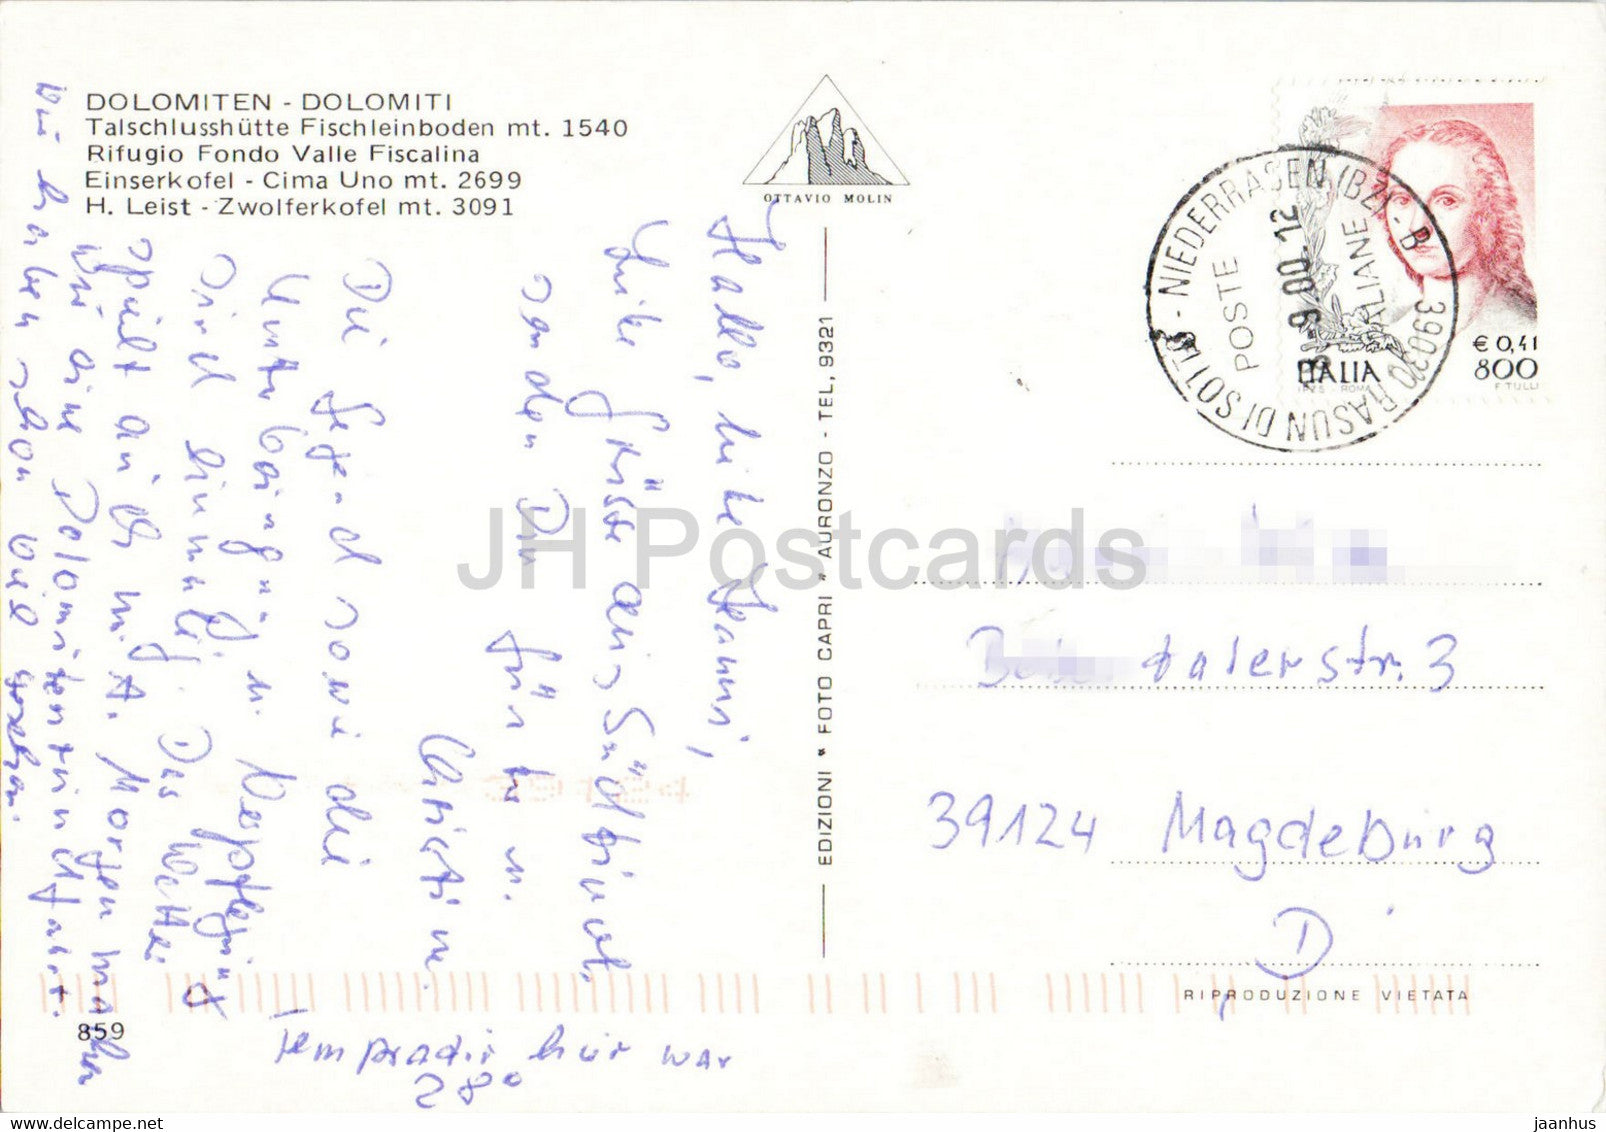 DOLOMITEN - DOLOMITI
Talschlusshütte Fischleinboden mt. 1540
Rifugio Fondo Valle Fiscalina
Einserkofel - Cima Uno mt. 2699
H. Leist - Zwolferkofel mt. 3091
OTTAVIO MOLIN
Hallo, liebe Hanni,
Liebe Grüsse aus Südtirol
senden Dir Günter u.
Christine.
Die Gegend sowie die
Unterbringung u. Verpflegung
sind einmalig. Das Wetter
spielt auch mit. Morgen machen
wir eine Dolomitenrundfahrt.
Wir haben schon viel gesehen.
Temperadur hier war
28°
859
EDIZIONI * FOTO CAPRI * AURONZO - TEL. 9321
39030 RASUN DI SOTTO - NIEDERRASEN (BZ) - B
POSTE ITALIANE
-9.00.12
€ 0,41
800
ITALIA
F. TULLI
talerstr. 3
39124 Magdeburg
D
RIPRODUZIONE VIETATA
JH Postcards
www.delcampe.net
jaanhus